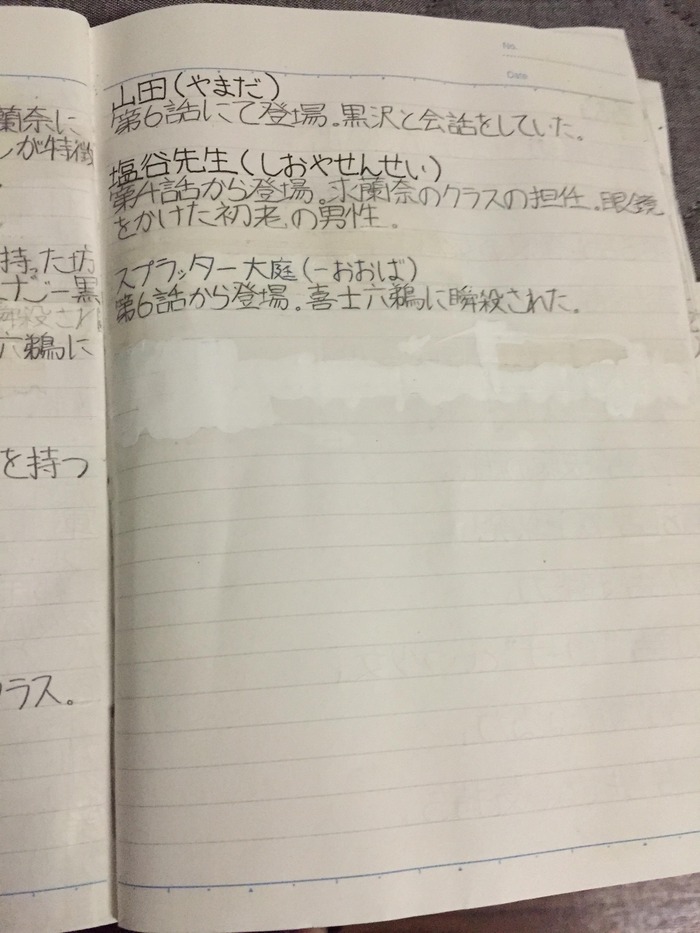 No.
Date
山田(やまだ)
第6話にて登場。黒沢と会話をしていた。
塩谷先生(しおやせんせい)
第4話から登場。求蘭奈のクラスの担任。眼鏡
をかけた初老の男性。
スプラッター大庭(ーおおば)
第6話から登場。喜士六鵜に瞬殺された。
蘭奈に
しが特徴
持った坊
けごー黒
瞬殺され
六鵜に
を持つ
クラス。